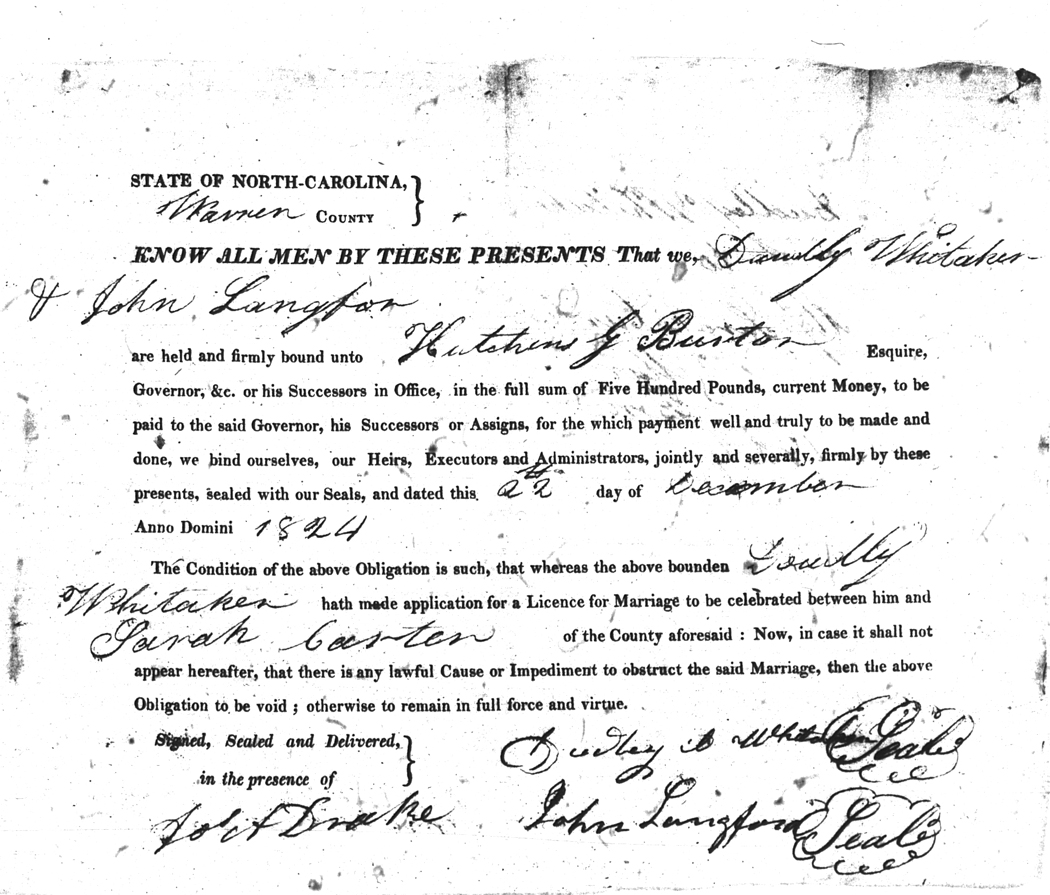 STATE OF NORTH-CAROLINA, }
Warren COUNTY
KNOW ALL MEN BY THESE PRESENTS That we, Dandly Whitaker
& John Langfor
are held and firmly bound unto Hutchins G Burton Esquire,
Governor, &c. or his Successors in Office, in the full sum of Five Hundred Pounds, current Money, to be
paid to the said Governor, his Successors or Assigns, for the which payment well and truly to be made and
done, we bind ourselves, our Heirs, Executors and Administrators, jointly and severally, firmly by these
presents, sealed with our Seals, and dated this 22th day of December
Anno Domini 1824
The Condition of the above Obligation is such, that whereas the above bounden Doudly
Whitaker hath made application for a Licence for Marriage to be celebrated between him and
Sarah Carter of the County aforesaid : Now, in case it shall not
appear hereafter, that there is any lawful Cause or Impediment to obstruct the said Marriage, then the above
Obligation to be void ; otherwise to remain in full force and virtue.
Signed, Sealed and Delivered, } Dudley Whitaker Seal
in the presence of
Drake John Langford Seal